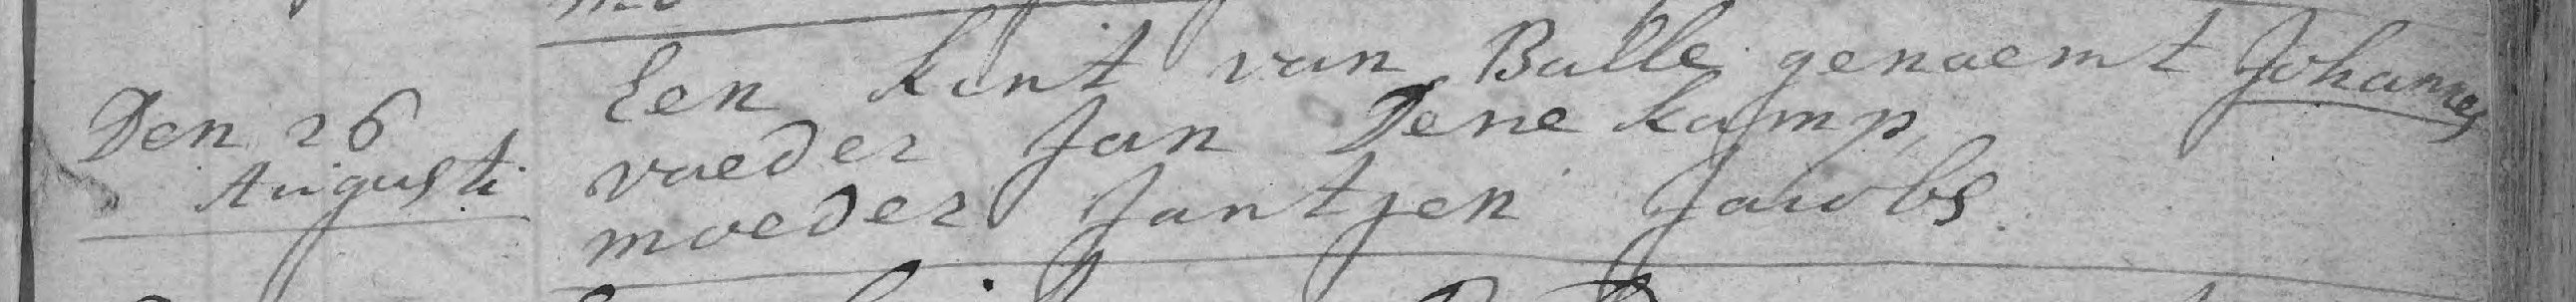 Een kint van Balle genaemt Johannes
Den 26 vaeder Jan Denekamp
Augusti moeder Jantjen Jacobs